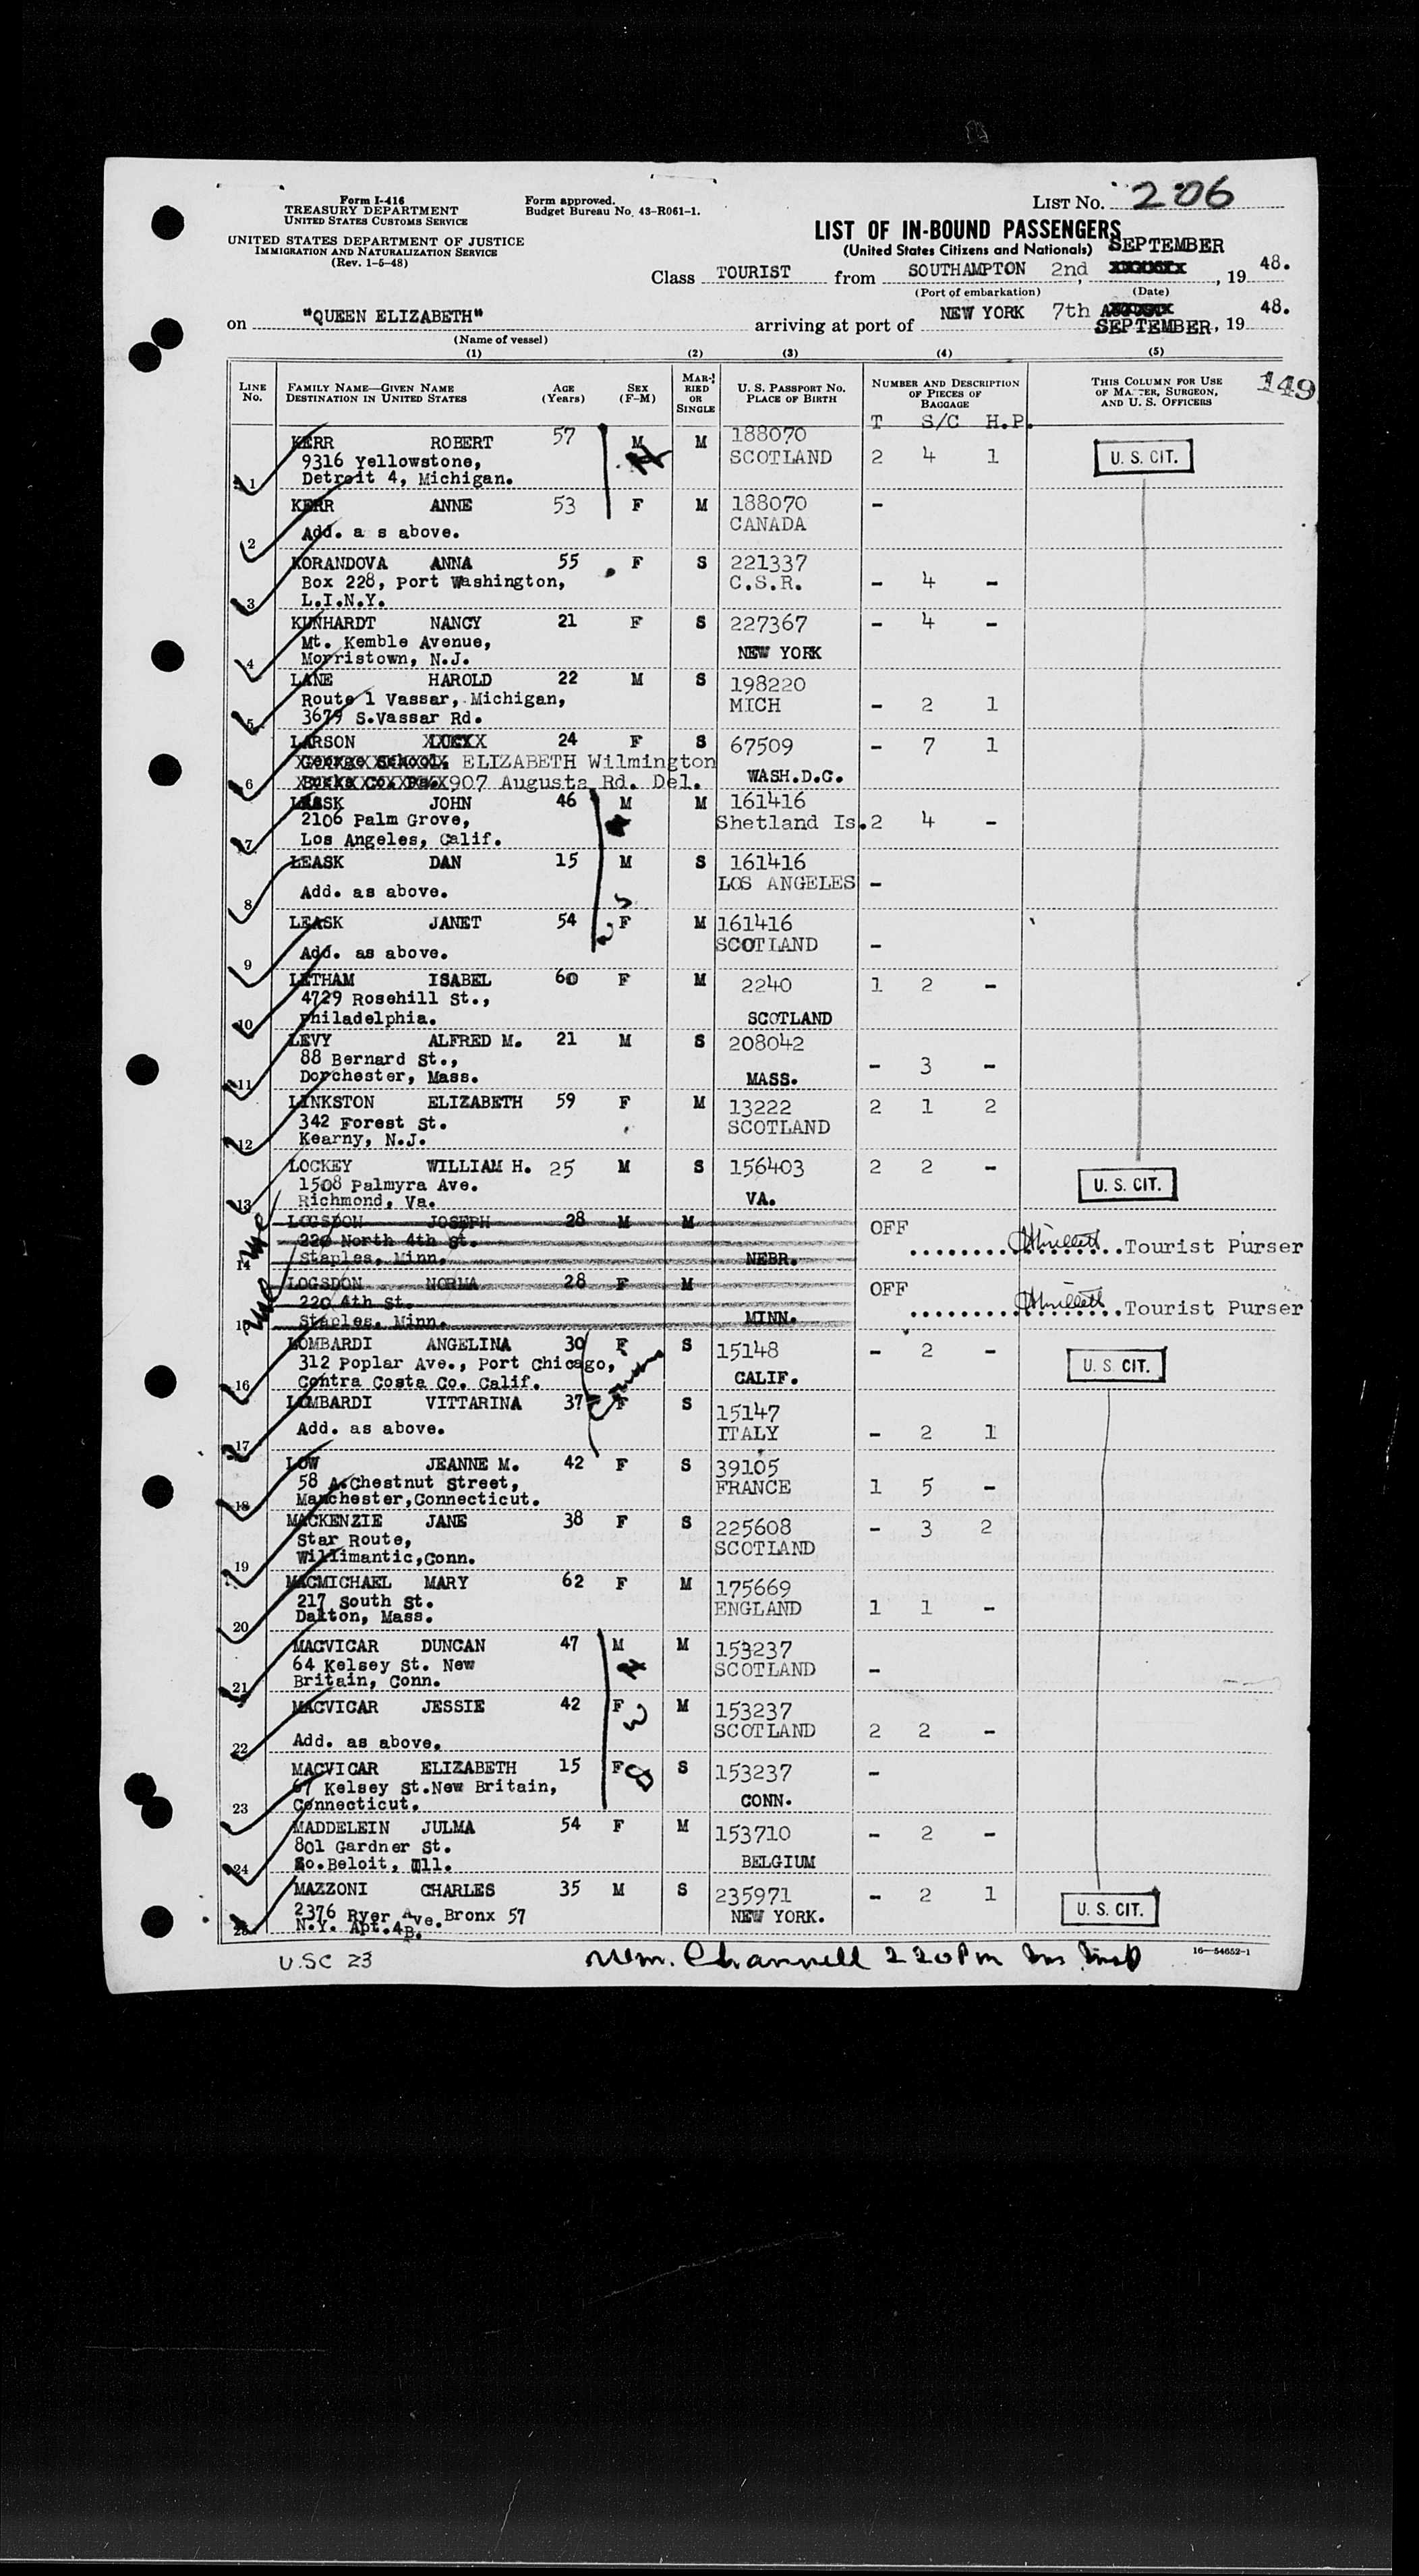 Form I-416
TREASURY DEPARTMENT
UNITED STATES CUSTOMS SERVICE
UNITED STATES DEPARTMENT OF JUSTICE
IMMIGRATION AND NATURALIZATION SERVICE
(Rev. 1-5-48)
Form approved.
Budget Bureau No. 43-R061-1.
LIST NO. 206
LIST OF IN-BOUND PASSENGERS
(United States Citizens and Nationals) SEPTEMBER
Class TOURIST from SOUTHAMPTON 2nd, , 19 48.
(Port of embarkation) (Date)
on "QUEEN ELIZABETH" arriving at port of NEW YORK 7th SEPTEMBER, 19 48.
(Name of vessel)
(1) (2) (3) (4) (5)
LINE No. FAMILY NAME—GIVEN NAME DESTINATION IN UNITED STATES AGE (Years) SEX (F-M) MARRIED OR SINGLE U. S. PASSPORT NO. PLACE OF BIRTH NUMBER AND DESCRIPTION OF PIECES OF BAGGAGE THIS COLUMN FOR USE OF MASTER, SURGEON, AND U. S. OFFICERS 149
T S/C H.P.
KERR ROBERT 57 M M 188070
9316 Yellowstone, SCOTLAND 2 4 1 U. S. CIT.
1 Detroit 4, Michigan.
KERR ANNE 53 F M 188070 -
2 Add. a s above. CANADA
KORANDOVA ANNA 55 F S 221337
Box 228, Port Washington, C.S.R. - 4 -
3 L.I.N.Y.
KUNHARDT NANCY 21 F S 227367 - 4 -
Mt. Kemble Avenue, NEW YORK
4 Morristown, N.J.
LANE HAROLD 22 M S 198220
Route 1 Vassar, Michigan, MICH - 2 1
5 3679 S.Vassar Rd.
LARSON LUCY 24 F S 67509 - 7 1
George School. ELIZABETH Wilmington
6 Bucks Co. Pa. 907 Augusta Rd. Del. WASH.D.C.
LEASK JOHN 46 M M 161416
2106 Palm Grove, Shetland Is. 2 4 -
7 Los Angeles, Calif.
LEASK DAN 15 M S 161416
8 Add. as above. LOS ANGELES -
LEASK JANET 54 F M 161416
9 Add. as above. SCOTLAND -
LETHAM ISABEL 60 F M 2240 1 2 -
4729 Rosehill St.,
10 Philadelphia. SCOTLAND
LEVY ALFRED M. 21 M S 208042
88 Bernard St., - 3 -
11 Dorchester, Mass. MASS.
LINKSTON ELIZABETH 59 F M 13222 2 1 2
342 Forest St. SCOTLAND
12 Kearny, N.J.
LOCKEY WILLIAM H. 25 M S 156403 2 2 -
1508 Palmyra Ave. U. S. CIT.
13 Richmond, Va. VA.
LOGSDON JOSEPH 28 M M OFF
220 North 4th St. Tourist Purser
14 Staples, Minn. NEBR.
LOGSDON NORMA 28 F M OFF
220 4th St. Tourist Purser
15 Staples, Minn. MINN.
LOMBARDI ANGELINA 30 F S 15148 - 2 -
312 Poplar Ave., Port Chicago, U. S. CIT.
16 Contra Costa Co. Calif. CALIF.
LOMBARDI VITTARINA 37 F S 15147
17 Add. as above. ITALY - 2 1
LOW JEANNE M. 42 F S 39105
58 A.Chestnut Street, FRANCE 1 5 -
18 Manchester,Connecticut.
MACKENZIE JANE 38 F S 225608 - 3 2
Star Route, SCOTLAND
19 Willimantic,Conn.
MACMICHAEL MARY 62 F M 175669
217 South St. ENGLAND 1 1 -
20 Dalton, Mass.
MACVICAR DUNCAN 47 M M 153237
64 Kelsey St. New SCOTLAND -
21 Britain, Conn.
MACVICAR JESSIE 42 F M 153237
22 Add. as above. SCOTLAND 2 2 -
MACVICAR ELIZABETH 15 F S 153237 -
67 Kelsey St.New Britain, CONN.
23 Connecticut.
MADDELEIN JULMA 54 F M 153710 - 2 -
801 Gardner St.
24 So.Beloit, Ill. BELGIUM
MAZZONI CHARLES 35 M S 235971 - 2 1
2376 Ryer Ave. Bronx 57 NEW YORK. U. S. CIT.
25 N.Y. Apt.4B.
USC 23 Wm. Channell 220 Pm Ins. Insp 16—54652-1